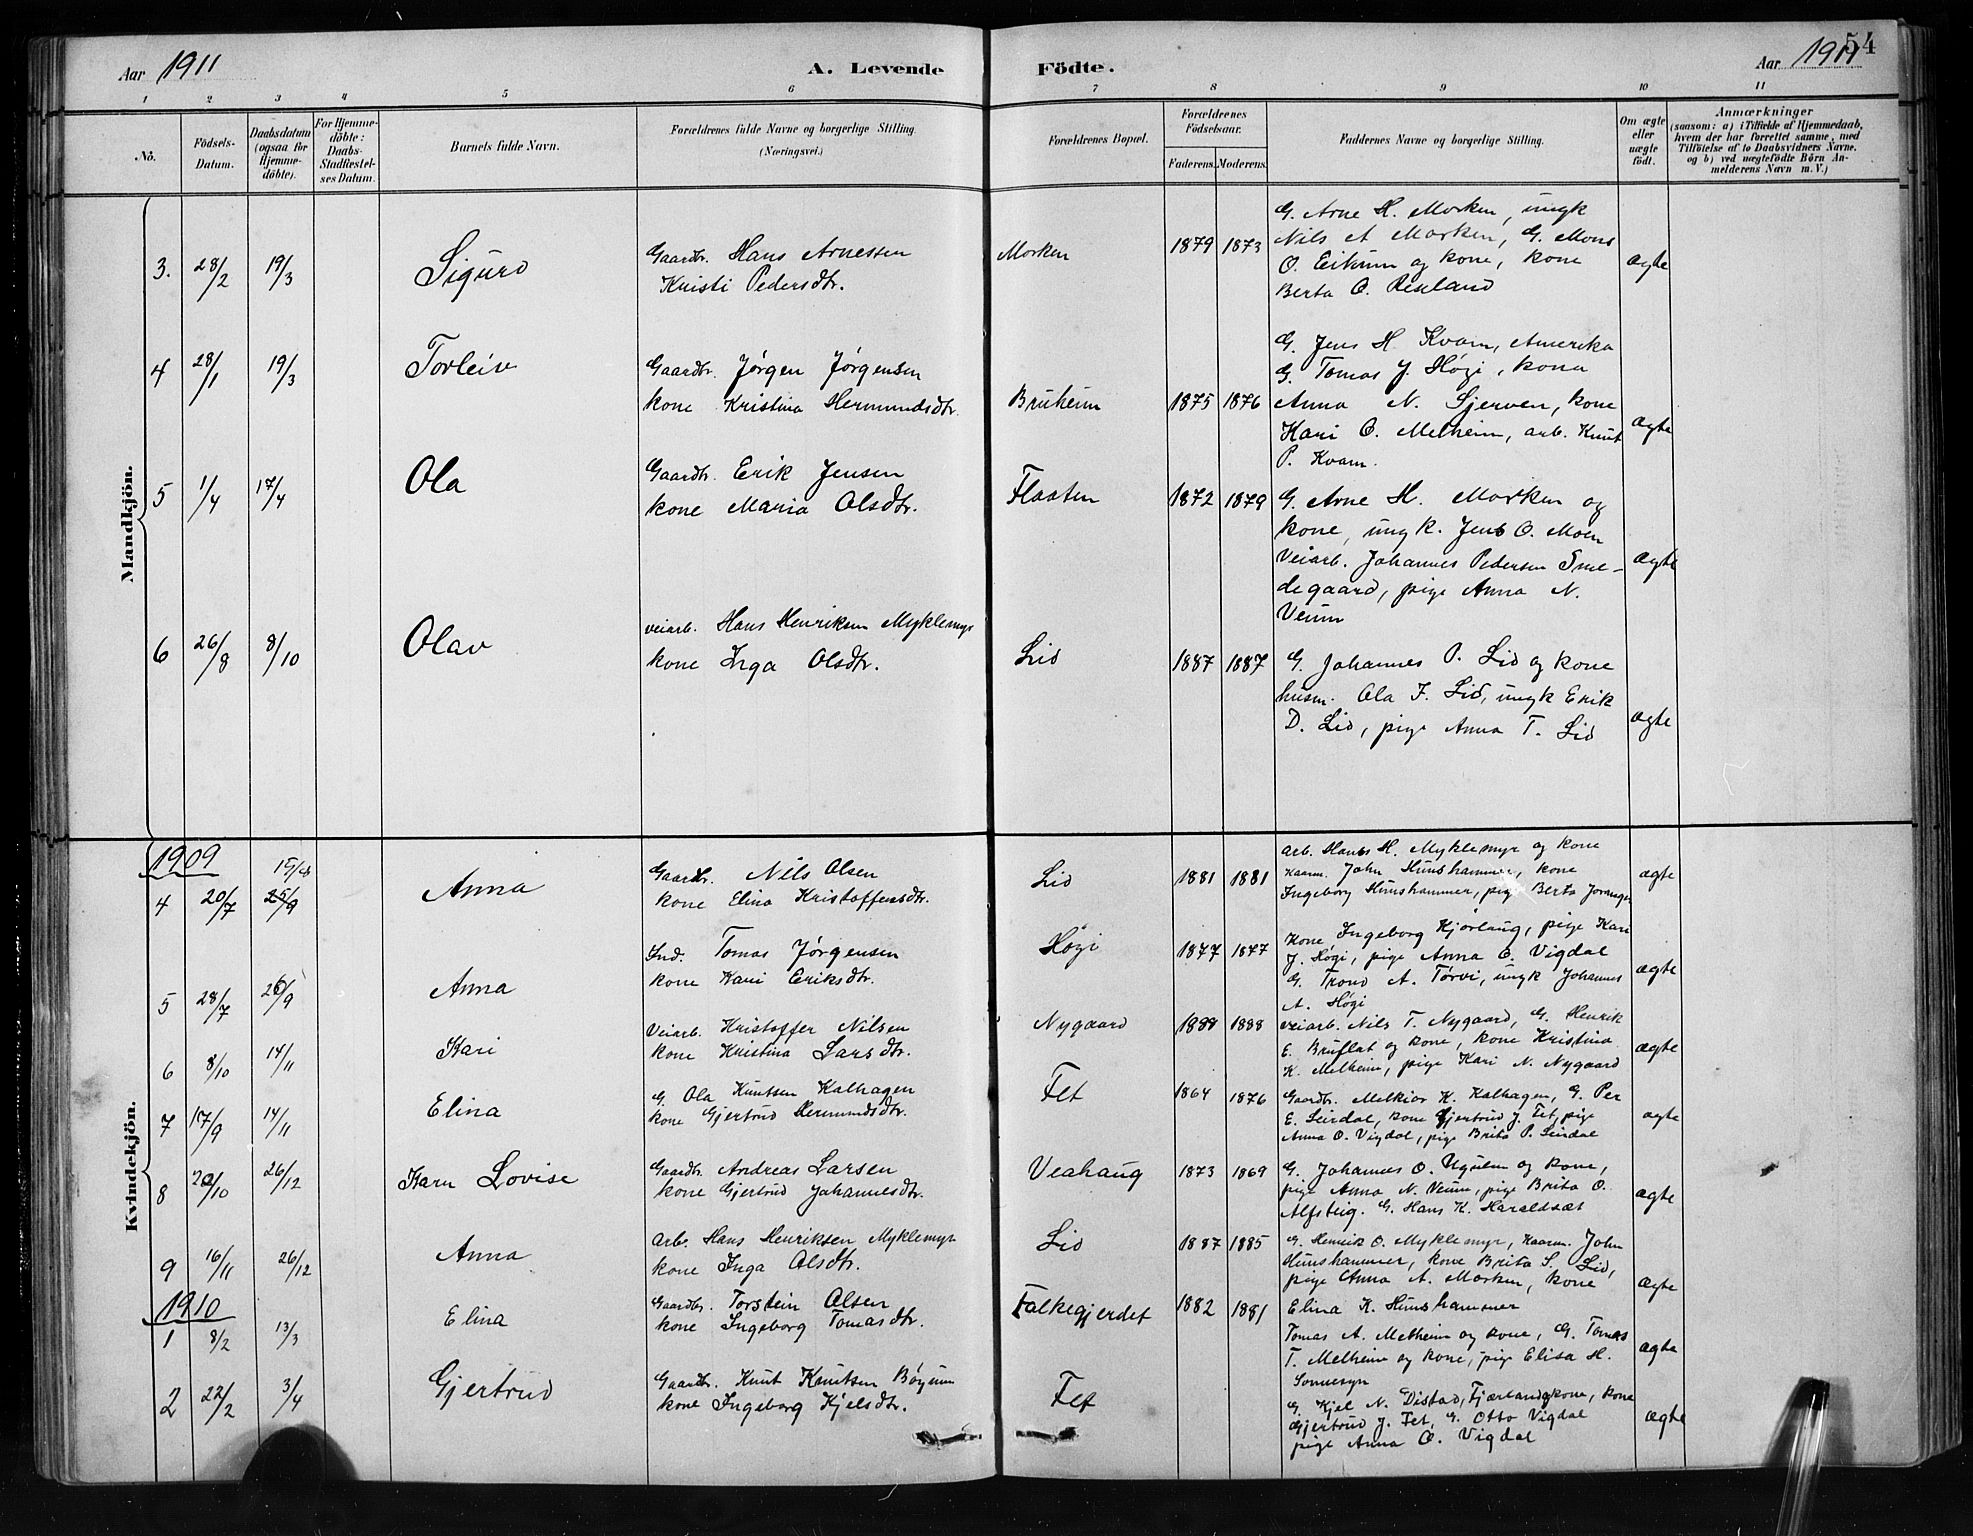 Aar 1911
A. Levende Födte.
Aar 1911
54
1 2 3 4 5 6 7 8 9 10 11
No.
Födsels-
Datum.
Daabsdatum
(ogsaa for
Hjemme-
döbte).
For Hjemme-
döbte:
Daabs-
Stadfæstel-
ses Datum.
Barnets fulde Navn.
Forældrenes fulde Navne og borgerlige Stilling.
(Næringsvei.)
Forældrenes Bopæl.
Forældrenes
Födselsaar.
Faderens. Moderens.
Faddernes Navne og borgerlige Stilling.
Om ægte
eller
uægte
födt.
Anmærkninger
(saasom: a) i Tilfælde af Hjemmedaab,
hvem der har forrettet samme, med
Tilföielse af to Daabsvidners Navne.
og b) ved uægtefödte Börn An-
melderens Navn m. V.)
Mandkjön.
3. 28/2 19/3 Sigurd
Gaardbr. Hans Arnessen
Kristi Pedersdtr.
Morken 1879 1873
G. Arne H. Morken, ungk
Nils A Morken, G. Mons
O. Eikum og kone, kone
Berta O. Renland
ægte
4 28/1 19/3 Torleiv
Gaardbr. Jørgen Jørgensen
kone Kristina Hermundsdtr.
Bruheim 1875 1876
G. Jens H. Kvam, Amerika
G. Tomas J. Høgi, kona
Anna N. Sjerven, kone
Kari O. Melheim, arb. Knut
P. Kvam.
ægte
5 1/4 17/4 Ola
Gaardbr. Erik Jensen
kone Maria Olsdtr.
Flaaten 1872 1879
G. Arne H. Morken og
kone, ungk. Jens O. Moen
Veiarb. Johannes Pedersen Sme-
degaard, pige Anna N.
Veum
ægte
6 26/8 8/10 Olav
veiarb. Hans Henriksen Myklemyr
kone Inga Olsdtr.
Lid 1887 1887
G. Johannes P. Lid og kone
husm. Ola J. Lid, ungk Erik
D. Lid, pige Anna T. Lid
ægte
Kvindekjön.
1909
4 20/7 25/9 Anna
Gaardbr. Nils Olsen
kone Elina Kristoffersdtr.
Lid 1881 1881
arb. Hans H. Myklemyr og kone
kaarm. John Hunshammer, kone
Ingeborg Hunshammer, pige Berta Joranger
ægte
5 28/7 26/9 Anna
Ind. Tomas Jørgensen
kone Kari Eriksdtr.
Høgi 1877 1877
Kone Ingeborg Kjørlaug, pige Kari
J. Høgi, pige Anna O. Vigdal
G. Trond A. Tørvi, ungk Johannes
A. Høgi
ægte
6 8/10 14/11 Kari
Veiarb. Kristoffer Nilsen
kone Kristina Larsdtr.
Nygaard 1888 1888
veiarb. Nils T. Nygaard, G. Henrik
E. Bruflat og kone, kone Kristina
K. Melheim, pige Kari N. Nygaard
ægte
7 17/9 14/11 Elina
G. Ola Knutsen Kalhagen
kone Gjertrud Hermundsdtr.
Fet 1864 1876
Gaardbr. Melkior K. Kalhagen, G. Per
E. Leirdal, kone Gjertrud J. Fet, pige
Anna O. Vigdal, pige Brita P. Leirdal
ægte
8 20/10 26/12 Karn Lovise
Gaardbr. Andreas Larsen
kone Gjertrud Johannesdtr.
Veahaug 1873 1869
G. Johannes O. Ugulen og kone,
pige Anna N. Veum, pige Brita O.
Alfsteig. G. Hans K. Haraldsæt
ægte
9 16/11 26/12 Anna
Arb. Hans Henriksen Myklemyr
kone Inga Olsdtr.
Lid 1887 1885
G. Henrik O. Myklemyr, Kaarm. John
Hunshammer, kone Brita S. Lid,
pige Anna A. Morken, kone
Elina K. Hunshammer
ægte
1910
1 8/2 13/3 Elina
Gaardbr. Torstein Olsen
kone Ingeborg Tomasdtr.
Falkegjerdet 1882 1881
Tomas A. Melheim og kone, G. Tomas
T. Melheim og kone, pige Elisa H.
Sonnesyn
ægte
2 22/2 3/4 Gjertrud
Gaardbr. Knut Knutsen Bøyum
kone Ingeborg Kjelsdtr.
Fet
G. Kjel N. Distad, Fjærland og kone, kone
Gjertrud J. Fet, G. Otto Vigdal
pige Anna O. Vigdal
ægte